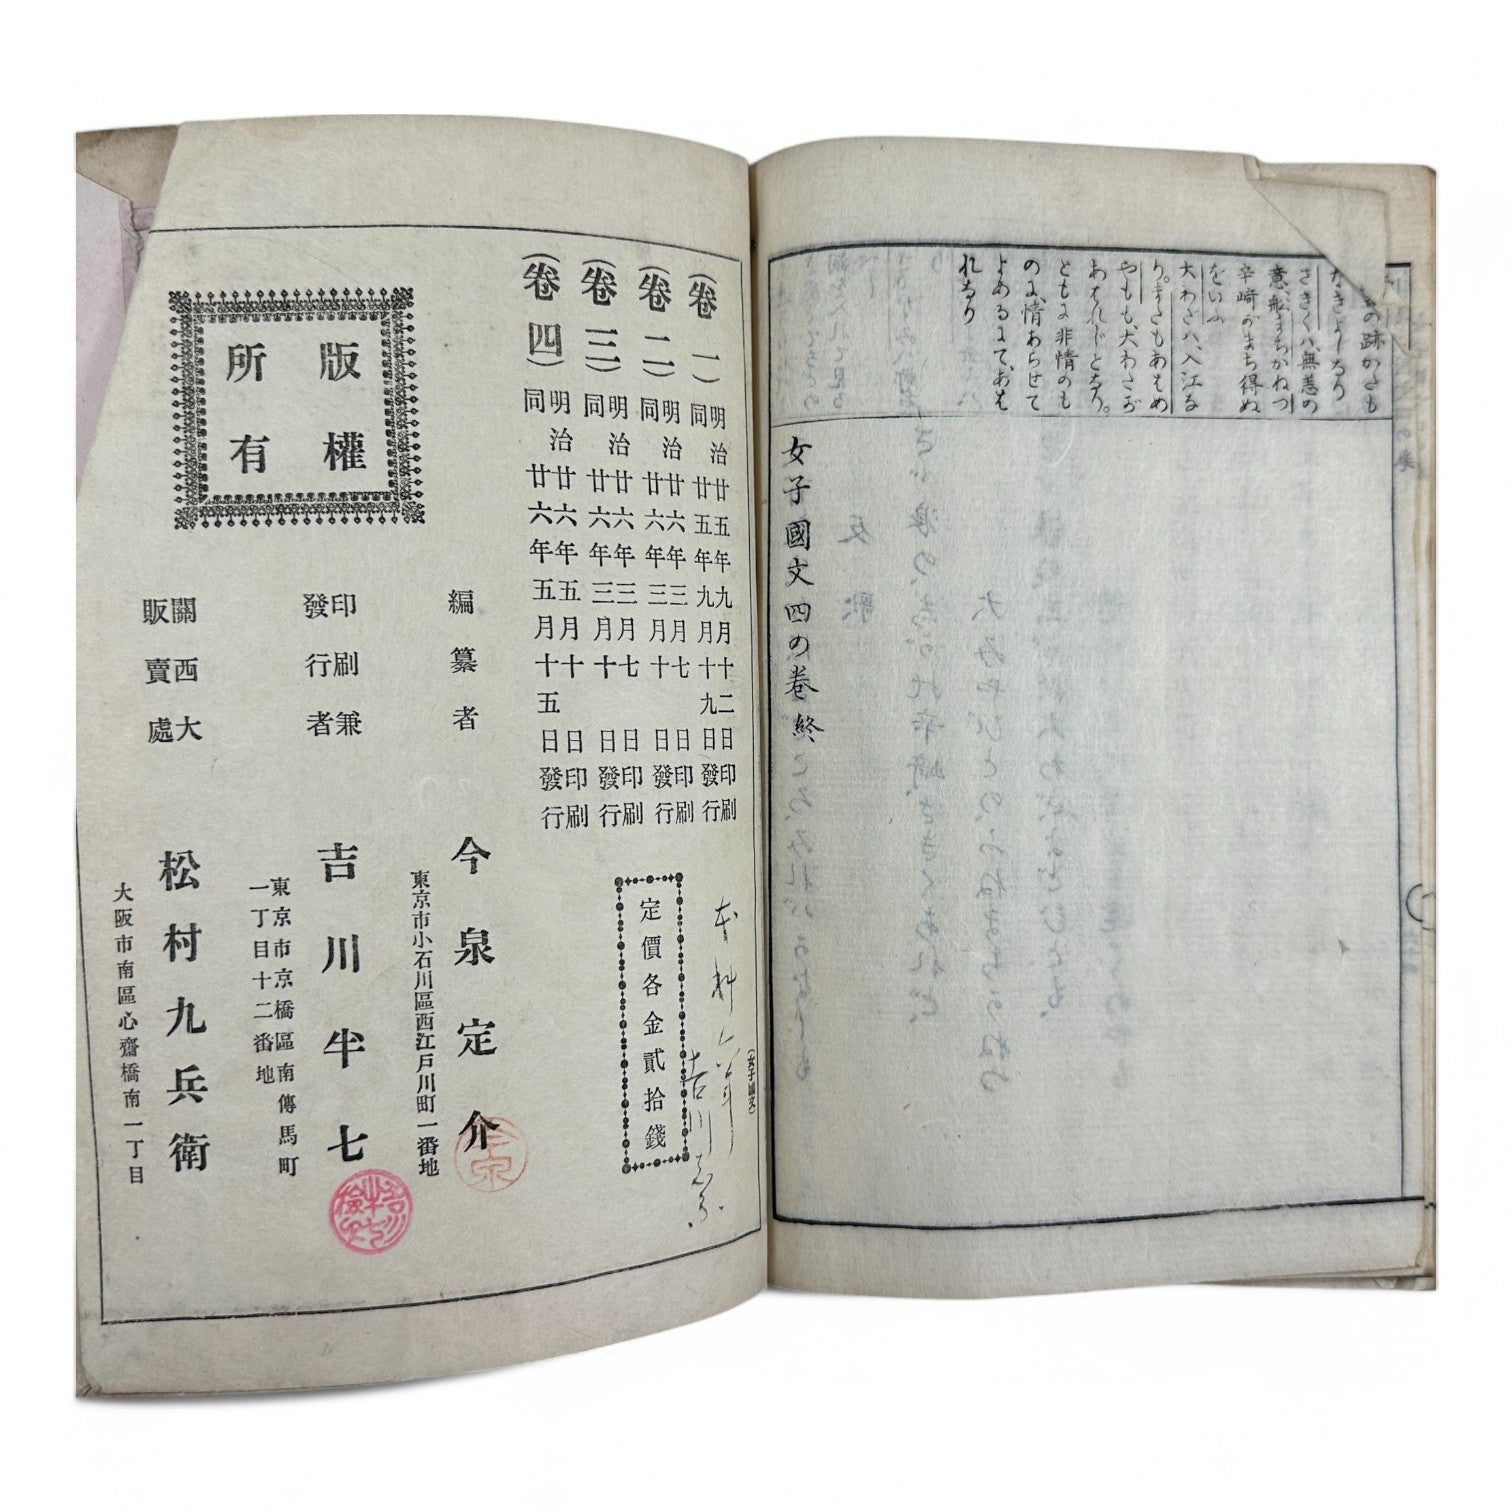 の跡かたも
なきよしなり
さきくハ、無恙の
意、船まちかねつ
辛崎がまち得ぬ
をいふ
大わだハ、入江な
り。またもあはめ
やもも、大わだが
あはれじとなり。
ともに非情のも
のに、情あらせて
よめるにて、あは
れなり
女子國文四の巻終
(卷一)
明治廿五年九月十二日印刷
同廿五年九月十九日發行
(卷二)
明治廿六年三月七日印刷
同廿六年三月十日發行
(卷三)
明治廿六年三月七日印刷
同廿六年三月十日發行
(卷四)
明治廿六年五月十日印刷
同廿六年五月十五日發行
(女子國文)
定價各金貳拾錢
版權
所有
編纂者
今泉定介
東京市小石川區西江戸川町一番地
印刷兼
發行者
吉川半七
東京市京橋區南傳馬町
一丁目十二番地
關西大
販賣處
松村九兵衛
大阪市南區心齋橋南一丁目